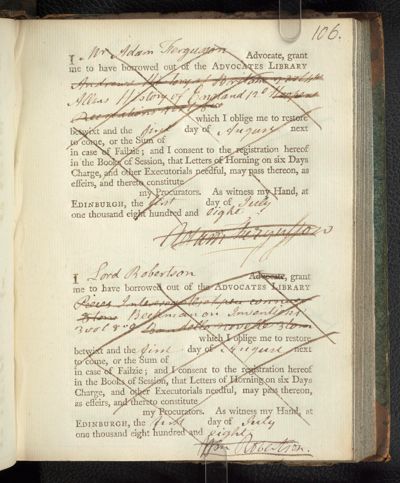 106.
I Mr Adam Ferguson Advocate, grant
me to have borrowed out of the ADVOCATES LIBRARY
Andrews History of
Allens History of England 12º

which I oblige me to restore
betwixt and the first day of August next
to come, or the Sum of
in case of Failzie; and I consent to the registration hereof
in the Books of Session, that Letters of Horning on six Days
Charge, and other Executorials needful, may pass thereon, as
effeirs, and thereto constitute
my Procurators. As witness my Hand, at
EDINBURGH, the first day of July
one thousand eight hundred and eight.
Adam Fergusson
I Lord Robertson Advocate, grant
me to have borrowed out of the ADVOCATES LIBRARY
Beckman on Inventions
3 vol 8vo
which I oblige me to restore
betwixt and the first day of August next
to come, or the Sum of
in case of Failzie; and I consent to the registration hereof
in the Books of Session, that Letters of Horning on six Days
Charge, and other Executorials needful, may pass thereon,
as effeirs, and thereto constitute
my Procurators. As witness my Hand, at
EDINBURGH, the first day of July
one thousand eight hundred and eight
Wm Robertson.